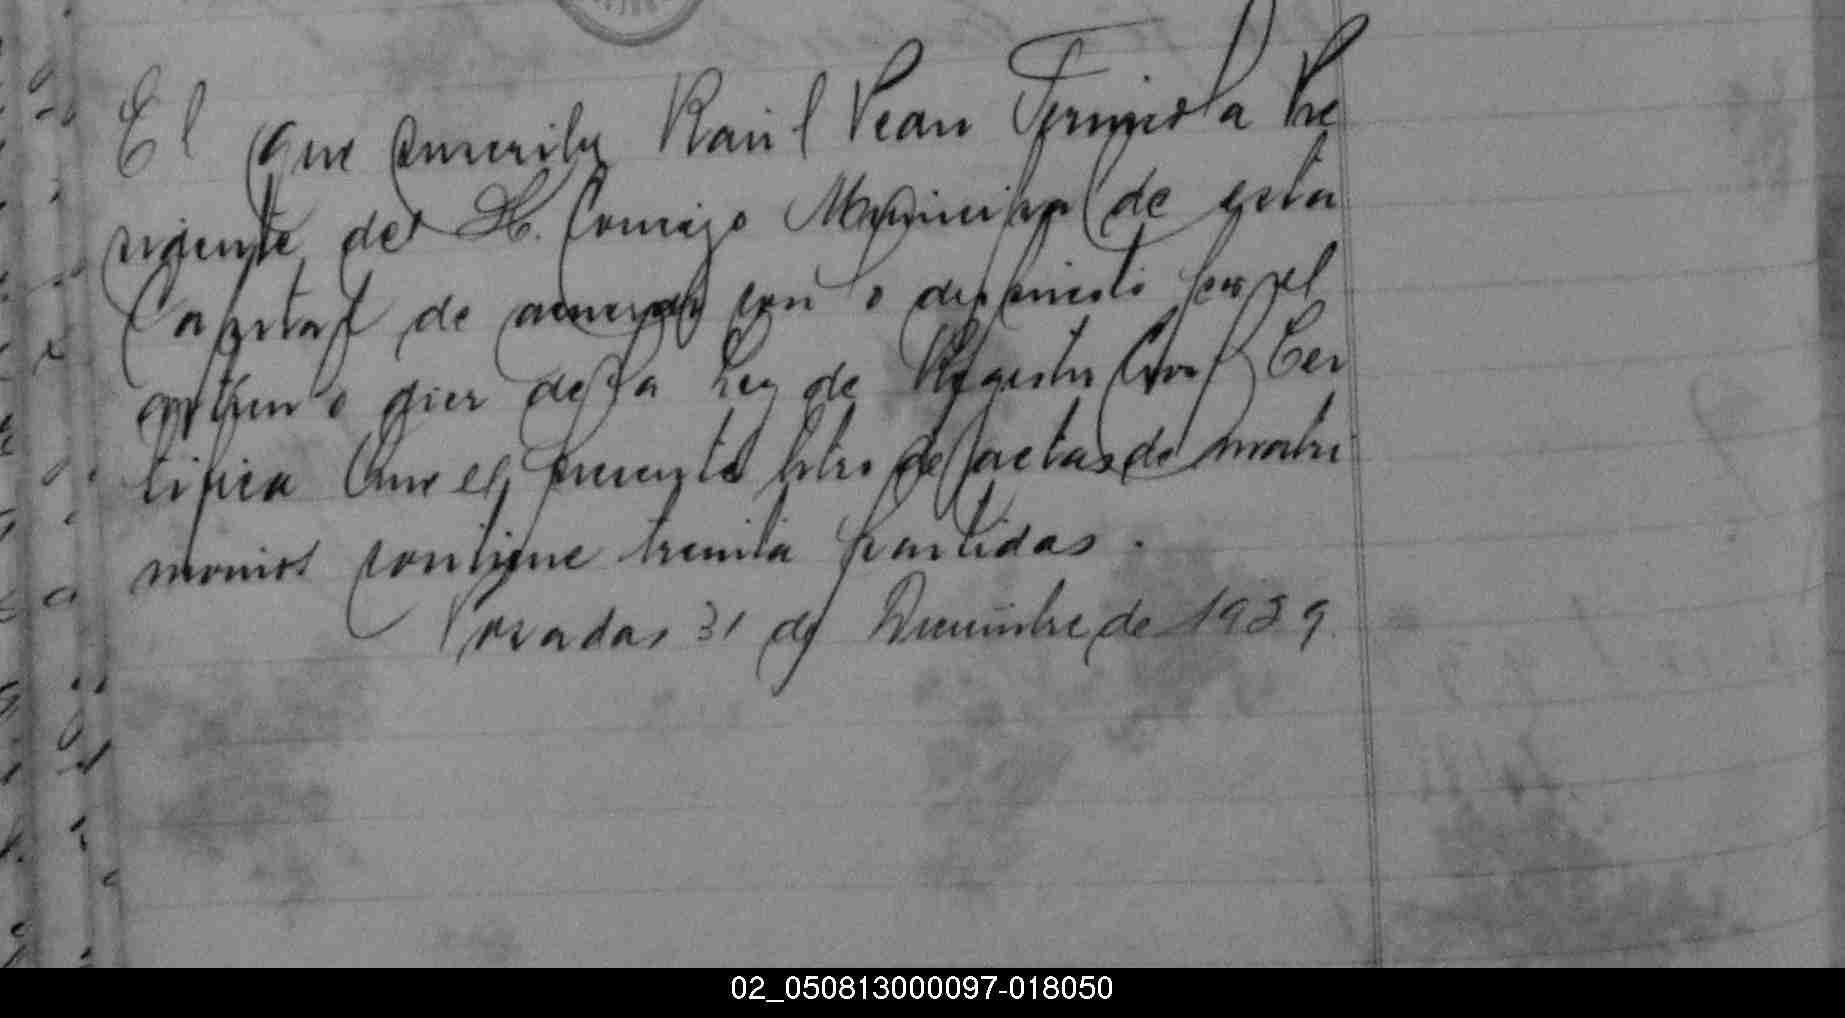 El que suscribe Raúl Pean           Pre
sidente del H. Concejo Municipal de esta
Capital de acuerdo con lo dispuesto por el
articulo diez de la Ley de Registro Civil Cer
tifica Que el presente libro de actas de matri
monios contiene treinta partidas.
Posadas 31 de Diciembre de 1939.
02_050813000097-018050